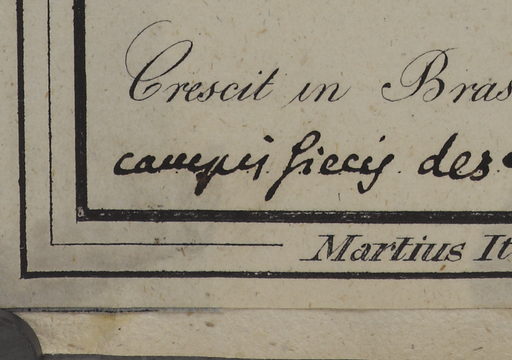 Crescit in Bras
campis siccis des
Martius It